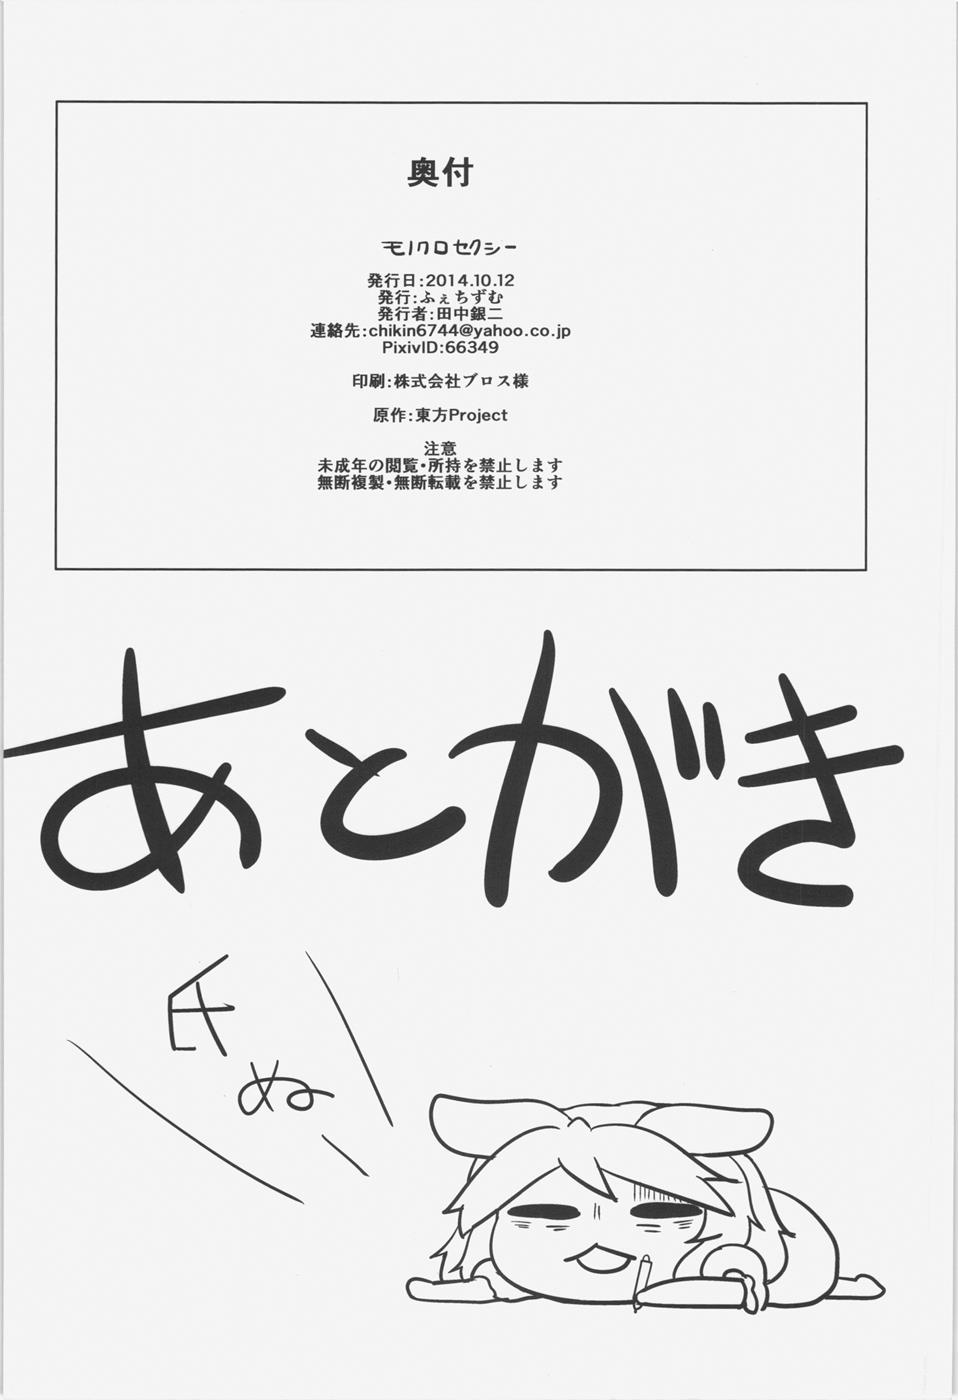 奥付
モノクロセクシー
発行日:2014.10.12
発行:ふぇちずむ
発行者:田中銀二
連絡先:chikin6744@yahoo.co.jp
PixivID:66349
印刷:株式会社ブロス様
原作:東方Project
注意
未成年の閲覧・所持を禁止します
無断複製・無断転載を禁止します
あとがき
氏ぬ